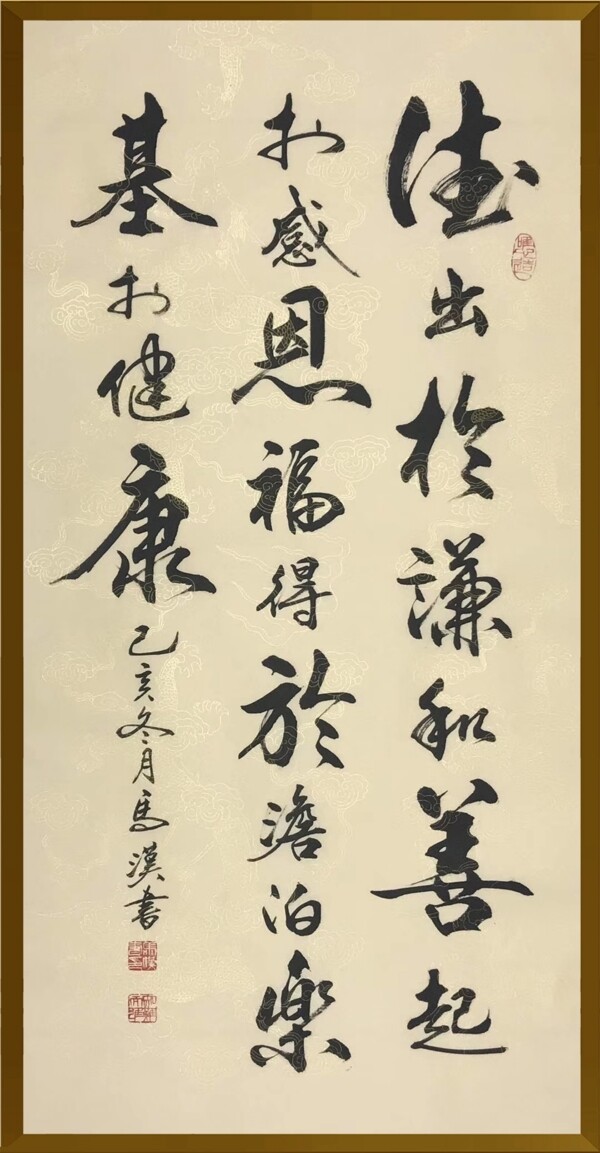 德出於謙和善起
於感恩福得於澹泊樂
基於健康己亥冬月馬漢書